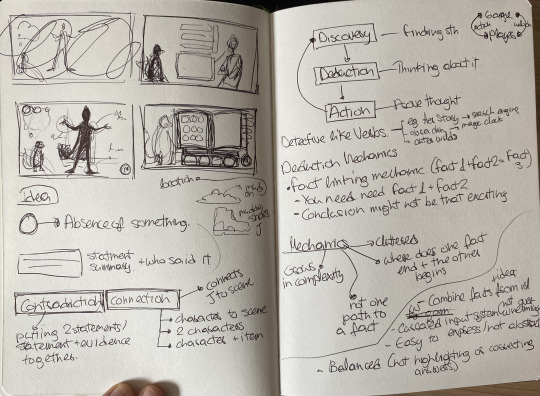 location
muddy shoes
Idea
Absence of something.
statment summary
+ who said it
Contradiction
Connection
connects
to scene
putting 2 statements/
statement + evidence
together.
character to scene
2 characters
character + item
Discovery
Finding sth
Deduction
Thinking about it
Action
Prove thought
Game
action
Player
Detective like Verbs.
eg. her story → search engine
obra dinn → magic clock
outer wilds
Deduction Mechanics
• Fact linking mechanic (fact 1 + fact 2 = fact 3)
- You need need fact 1 + Fact 2
- Conclusion might not be that exciting
Mechanics
cluttered
where does one fact
end + the other
begins
Grows
in complexity
not one
path to
a fact
idea
Combine facts from
- input system
- Easy to express (not abstract)
- Balanced (not highlighting or correcting
answers)